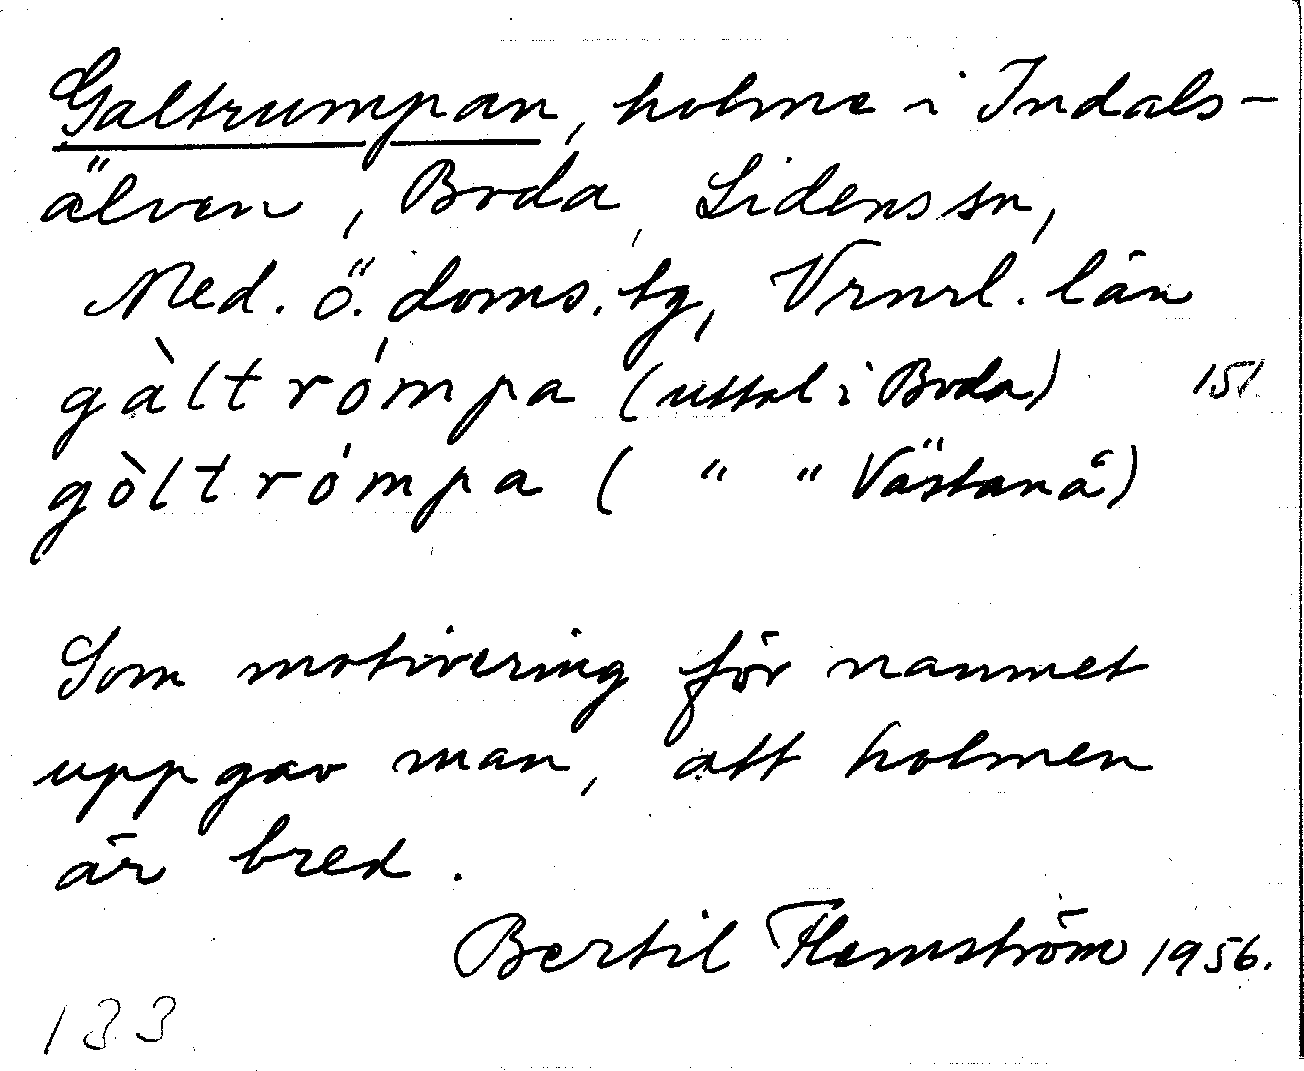 Galtrumpan, holme i Indals-
älven, Boda, Lidens sn,
Med. Ö. doms. tg, Vrnrl. län
gàltrómpa (uttal i Boda) 151
gòltrómpa ( " " Västanå)
Som motivering för namnet
uppgav man, att holmen
är bred.
Bertil Flemström 1956.
133